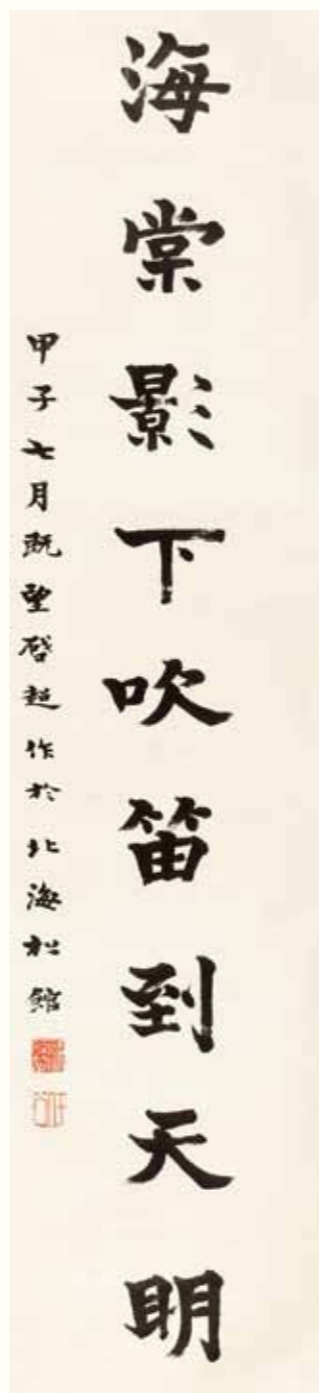 海棠影下吹笛到天明
甲子七月既望啓超作於北海松館